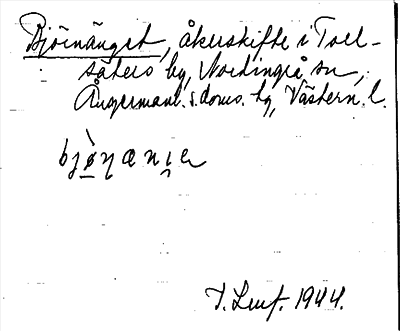 Björnänget, åkerskifte i Toll-
säters by, Nordingrå sn,
Ångermanl. s. doms. hg, Västern. l.
bjò̤ŋæni̭e
T. Lmf. 1944.